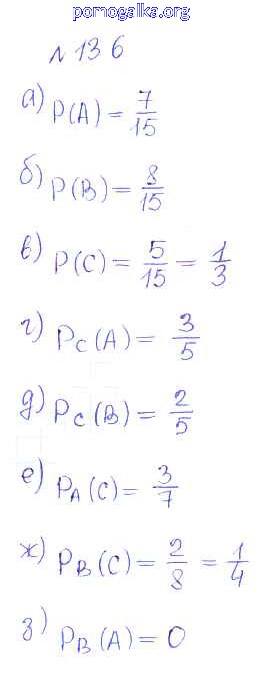 pomogalka.org
№ 136
а) P(A) = 7/15
б) P(B) = 8/15
в) P(C) = 5/15 = 1/3
г) P_C(A) = 3/5
д) P_C(B) = 2/5
е) P_A(C) = 3/7
ж) P_B(C) = 2/8 = 1/4
з) P_B(A) = 0